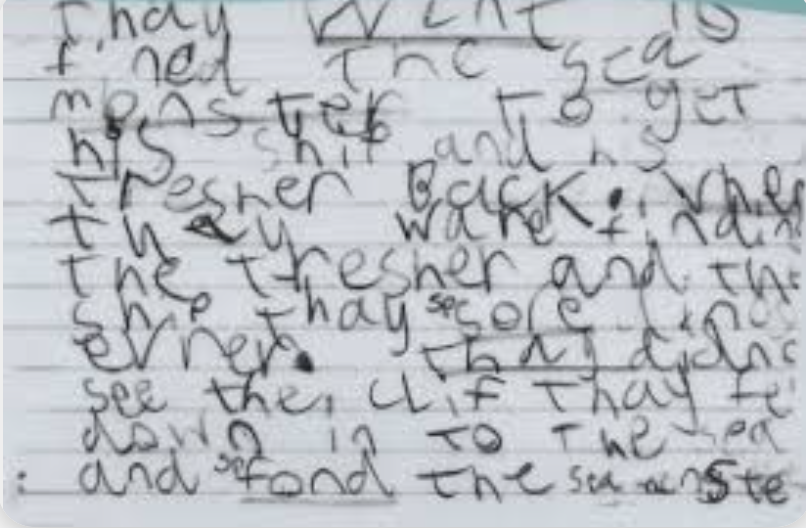 thay Went to
fined the sea
monster to get
his ship and his
tresher Back. when
they ware findin
the tresher and the
ship thay sore
erner. thay didnt
see the clif thay fe
down in to the sea
and fond the sea monste